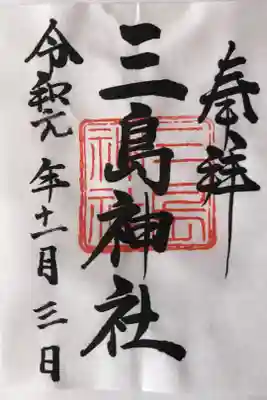 奉拝
三島神社
令和元年十一月三日